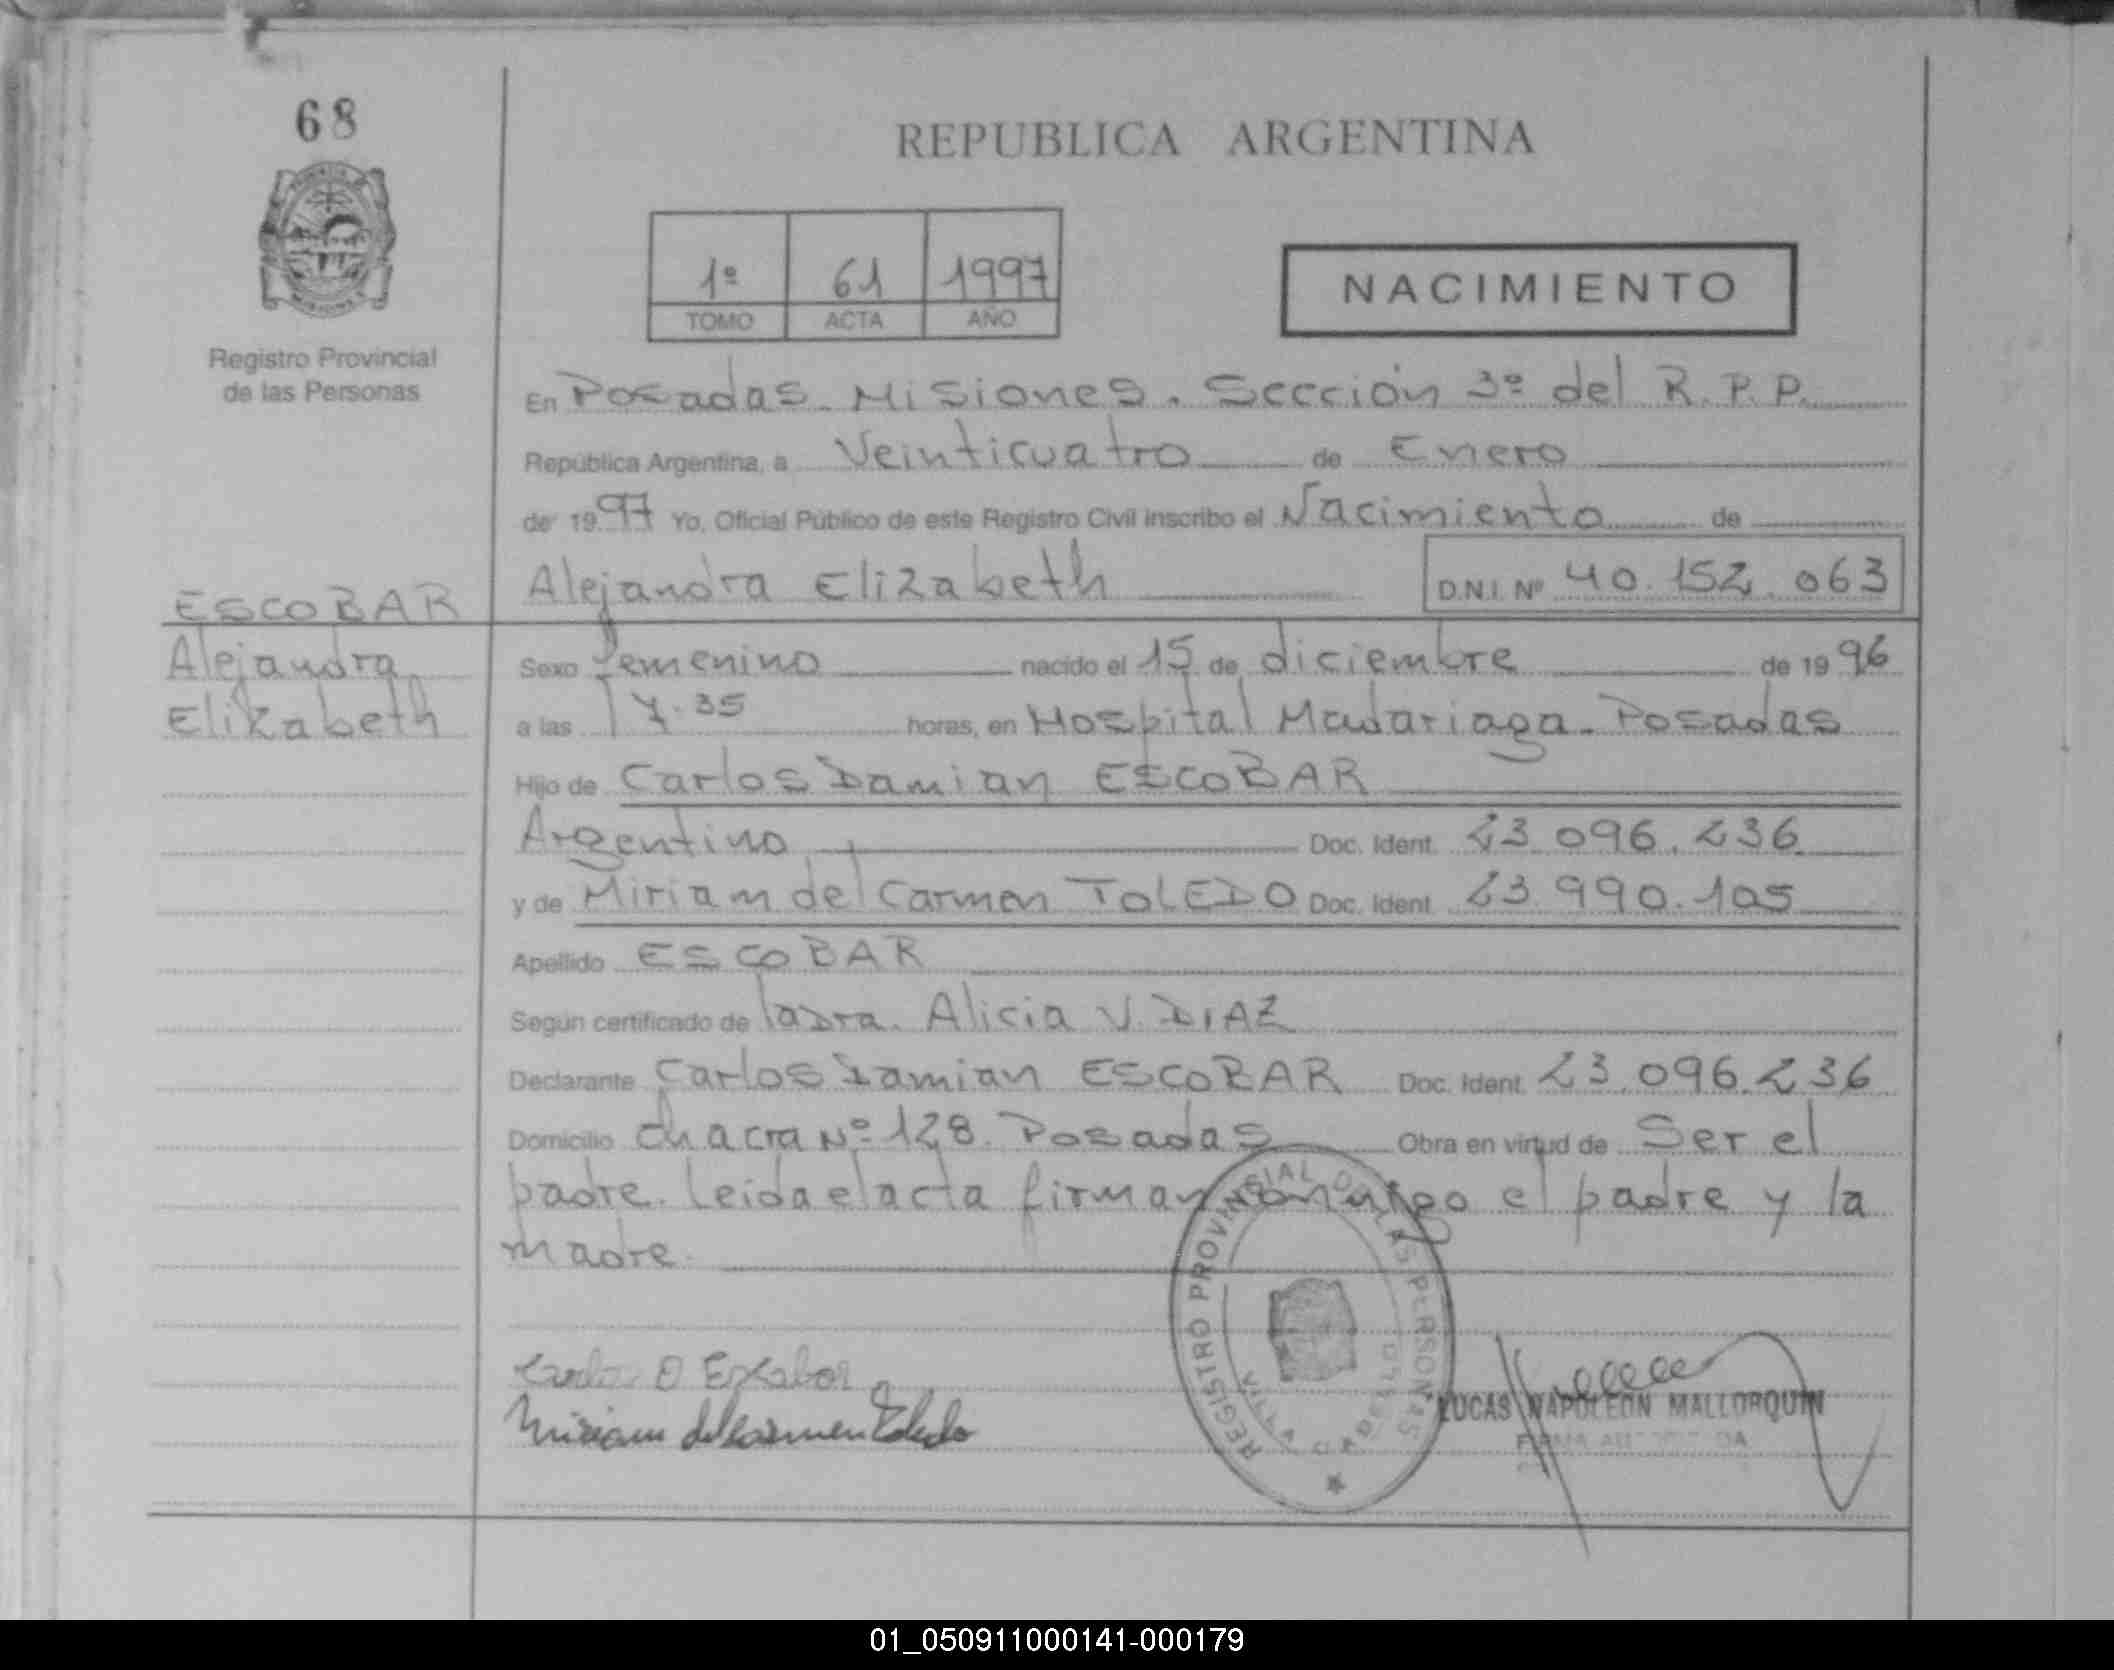 68
Registro Provincial
de las Personas
REPUBLICA ARGENTINA
1º 61 1997
TOMO ACTA AÑO
NACIMIENTO
En Posadas. Misiones. Sección 3º del R.P.P.
República Argentina, a Veinticuatro de Enero
de 1997 Yo, Oficial Público de este Registro Civil inscribo el Nacimiento de
Alejandra Elizabeth D.N.I. Nº 40.152.063
ESCOBAR
Alejandra
Elizabeth
Sexo femenino nacido el 15 de diciembre de 1996
a las 17.35 horas, en Hospital Madariaga. Posadas
Hijo de Carlos Damian ESCOBAR
Argentino Doc. Ident. 23.096.236
y de Miriam del Carmen TOLEDO Doc. Ident. 23.990.105
Apellido ESCOBAR
Según certificado de la Dra. Alicia V. DIAZ
Declarante Carlos Damian ESCOBAR Doc. Ident. 23.096.236
Domicilio Chacra Nº 128. Posadas Obra en virtud de Ser el
padre. Leida el acta firman conmigo el padre y la
madre.
REGISTRO PROVINCIAL DE LAS PERSONAS
Carlos D Escobar
Miriam del Carmen Toledo
LUCAS NAPOLEON MALLORQUIN
01_050911000141-000179